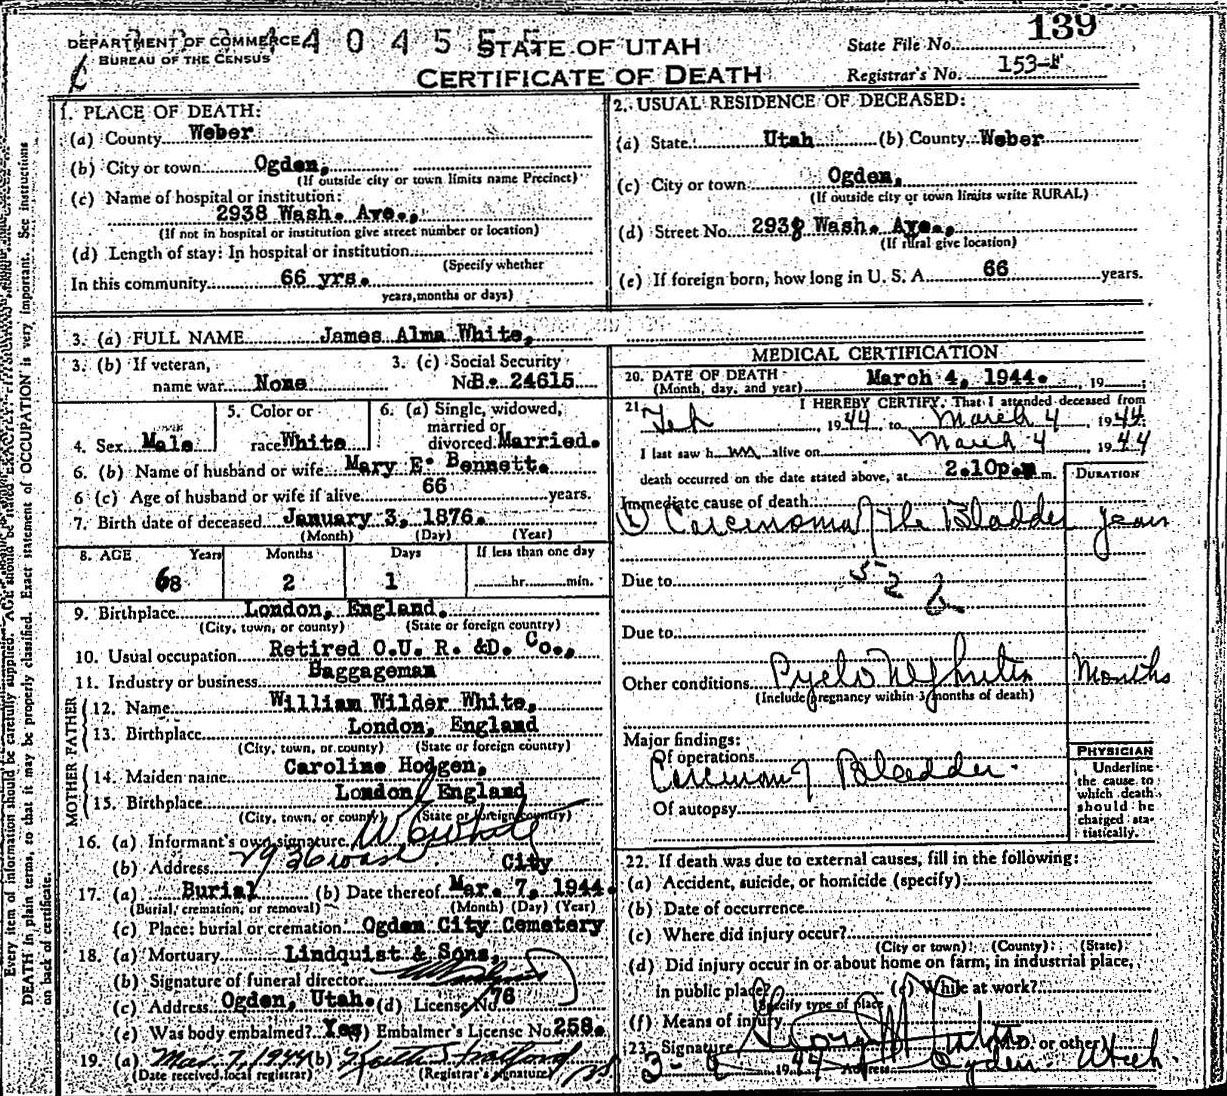 DEPARTMENT OF COMMERCE
BUREAU OF THE CENSUS
4 0 4 5 5
STATE OF UTAH
CERTIFICATE OF DEATH
139
State File No.
Registrar's No. 153-
1. PLACE OF DEATH:
(a) County Weber
(b) City or town Ogden,
(If outside city or town limits name Precinct)
(c) Name of hospital or institution:
2938 Wash. Ave.,
(If not in hospital or institution give street number or location)
(d) Length of stay: In hospital or institution
(Specify whether
In this community 66 yrs.
years, months or days)
2. USUAL RESIDENCE OF DECEASED:
(a) State Utah (b) County Weber
(c) City or town Ogden,
(If outside city or town limits write RURAL)
(d) Street No. 2938 Wash. Ave.,
(If rural give location)
(e) If foreign born, how long in U. S. A. 66 years.
3. (a) FULL NAME James Alma White,
3. (b) If veteran, name war None
3. (c) Social Security No. B. 24615
4. Sex Male
5. Color or race White
6. (a) Single, widowed, married or divorced Married.
6. (b) Name of husband or wife Mary E. Bennett.
6 (c) Age of husband or wife if alive 66 years.
7. Birth date of deceased January 3, 1876.
(Month) (Day) (Year)
8. AGE Years Months Days If less than one day
68 2 1 hr. min.
9. Birthplace London, England.
(City, town, or county) (State or foreign country)
10. Usual occupation Retired O.U. R. &D. Co.,
11. Industry or business Baggageman
FATHER
12. Name William Wilder White,
13. Birthplace London, England
(City, town, or county) (State or foreign country)
MOTHER
14. Maiden name Caroline Hodgen,
15. Birthplace London, England
(City, town, or county) (State or foreign country)
16. (a) Informant's own signature W White
(b) Address City
17. (a) Burial (b) Date thereof Mar. 7, 1944.
(Burial, cremation, or removal) (Month) (Day) (Year)
(c) Place: burial or cremation Ogden City Cemetery
18. (a) Mortuary Lindquist & Sons,
(b) Signature of funeral director
(c) Address Ogden, Utah. (d) License No. 76
(e) Was body embalmed? Yes) Embalmer's License No. 258.
19. (a) Mar. 7, 1944 (b)
(Date received local registrar) (Registrar's signature)
MEDICAL CERTIFICATION
20. DATE OF DEATH March 4, 1944. , 19
(Month, day, and year)
21. I HEREBY CERTIFY, That I attended deceased from
Feb , 1944 to March 4 , 1944.
I last saw him alive on March 4 1944
death occurred on the date stated above, at 2.10p.m.m.
DURATION
Immediate cause of death
Carcinoma of the Bladder years
Due to
52
Due to
Other conditions Pyelo Nephritis Months
(Include pregnancy within 3 months of death)
Major findings:
Of operations
Carcinoma of Bladder.
Of autopsy
PHYSICIAN
Underline
the cause to
which death
should be
charged sta-
tistically.
22. If death was due to external causes, fill in the following:
(a) Accident, suicide, or homicide (specify)
(b) Date of occurrence
(c) Where did injury occur?
(City or town) (County) (State)
(d) Did injury occur in or about home on farm, in industrial place,
in public place? (e) While at work?
(Specify type of place
(f) Means of injury
23. Signature (M.D. or other)
1944 Address Ogden Utah.
Every item of information should be carefully supplied. AGE should be stated EXACTLY.
DEATH in plain terms, so that it may be properly classified. Exact statement of OCCUPATION is very important. See instructions
on back of certificate.